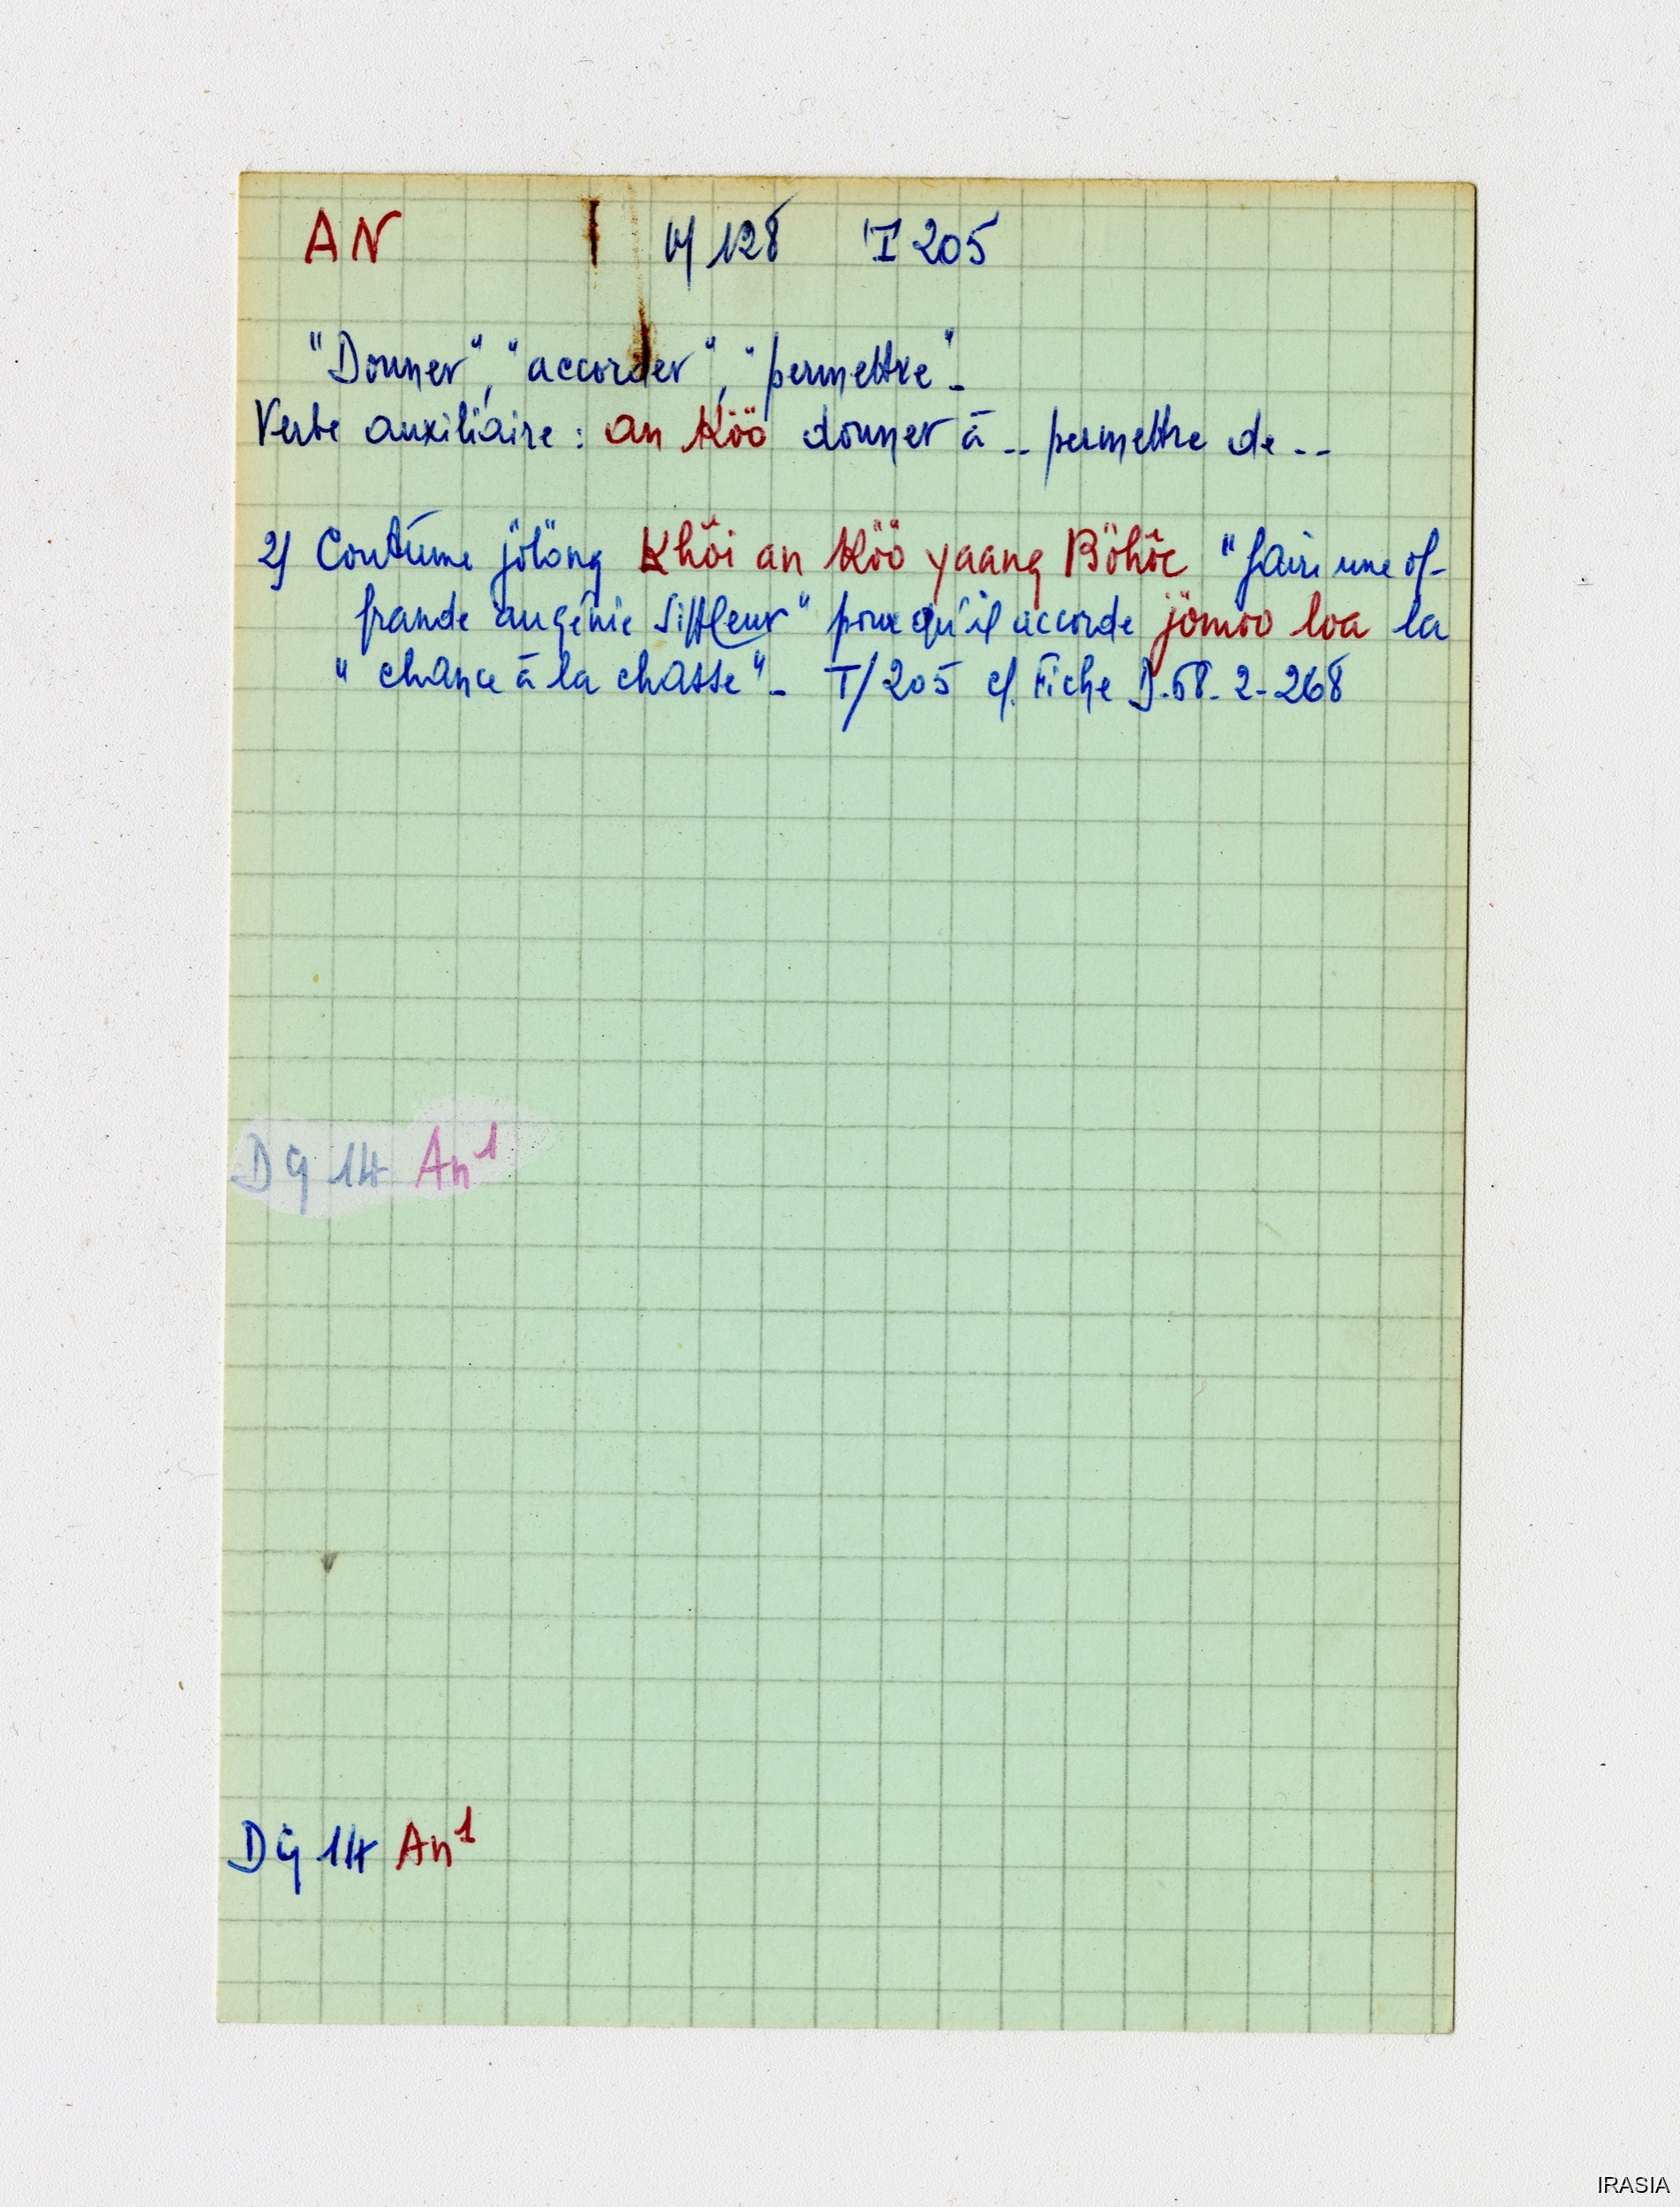 AN 128 T 205
"Donner", "accorder", "permettre" -
Verbe auxiliaire : an Köö donner à -- permettre de --
2/ Coutume jölöng Khôi an Köö yaang Böhôc "faire une of-
frande au génie Siffleur" pour qu'il accorde jömoo loa la
"chance à la chasse" - T/205 cf. Fiche D.58-2-268
DG 14 An¹
DG 14 An¹
IRASIA